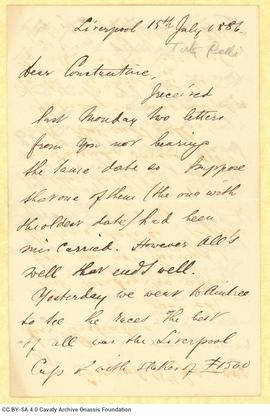 Liverpool 15th July 1886
Toto Ralli
Dear Constantine,
I received
last Monday two letters
from you not bearing
the same date so I suppose
that one of them (the one with
the oldest date) had been
miscarried. However All's
well that ends well.
Yesterday we went to Aintree
to see the races. The best
of all was the Liverpool
Cup with stakes of £1500
CC BY-SA 4.0 Cavafy Archive Onassis Foundation